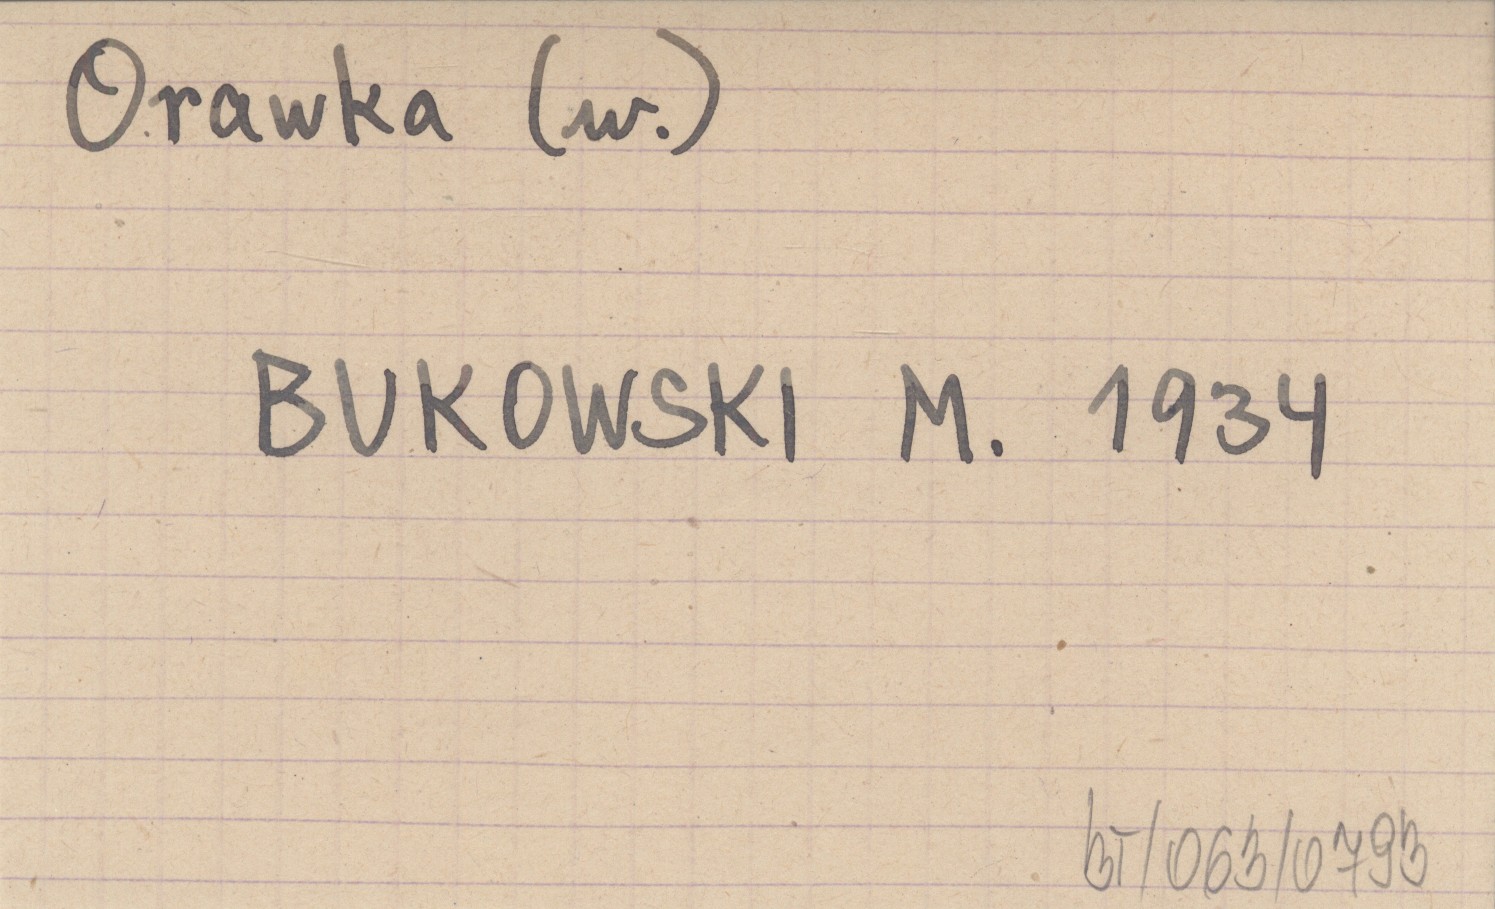 Orawka (w.)
BUKOWSKI M. 1934
bT/063/0793